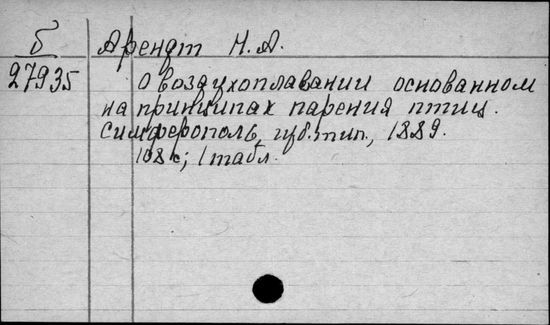 Б Арендт Н.А.
27935 О воздухоплавании основанном
на принципах парения птиц.
Симферополь, губ. тип., 1889.
108 с; 1 табл.